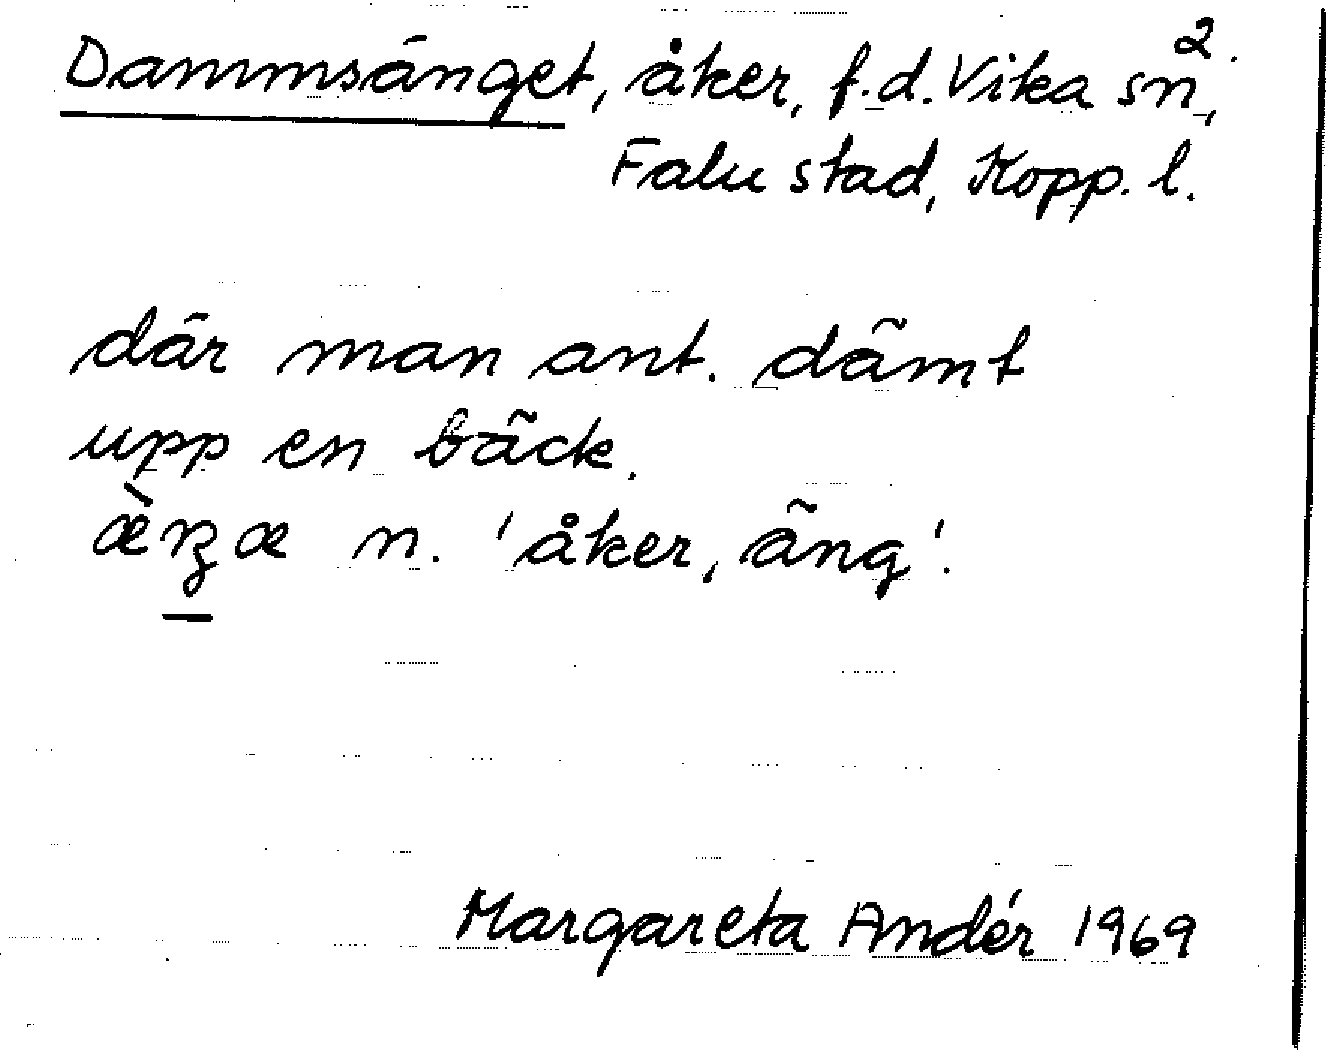 2.
Dammsänget, åker, f.d. Vika sn,
Falu stad, Kopp. l.
där man ant. dämt
upp en bäck.
n. 'åker, äng'.
Margareta Andér 1969